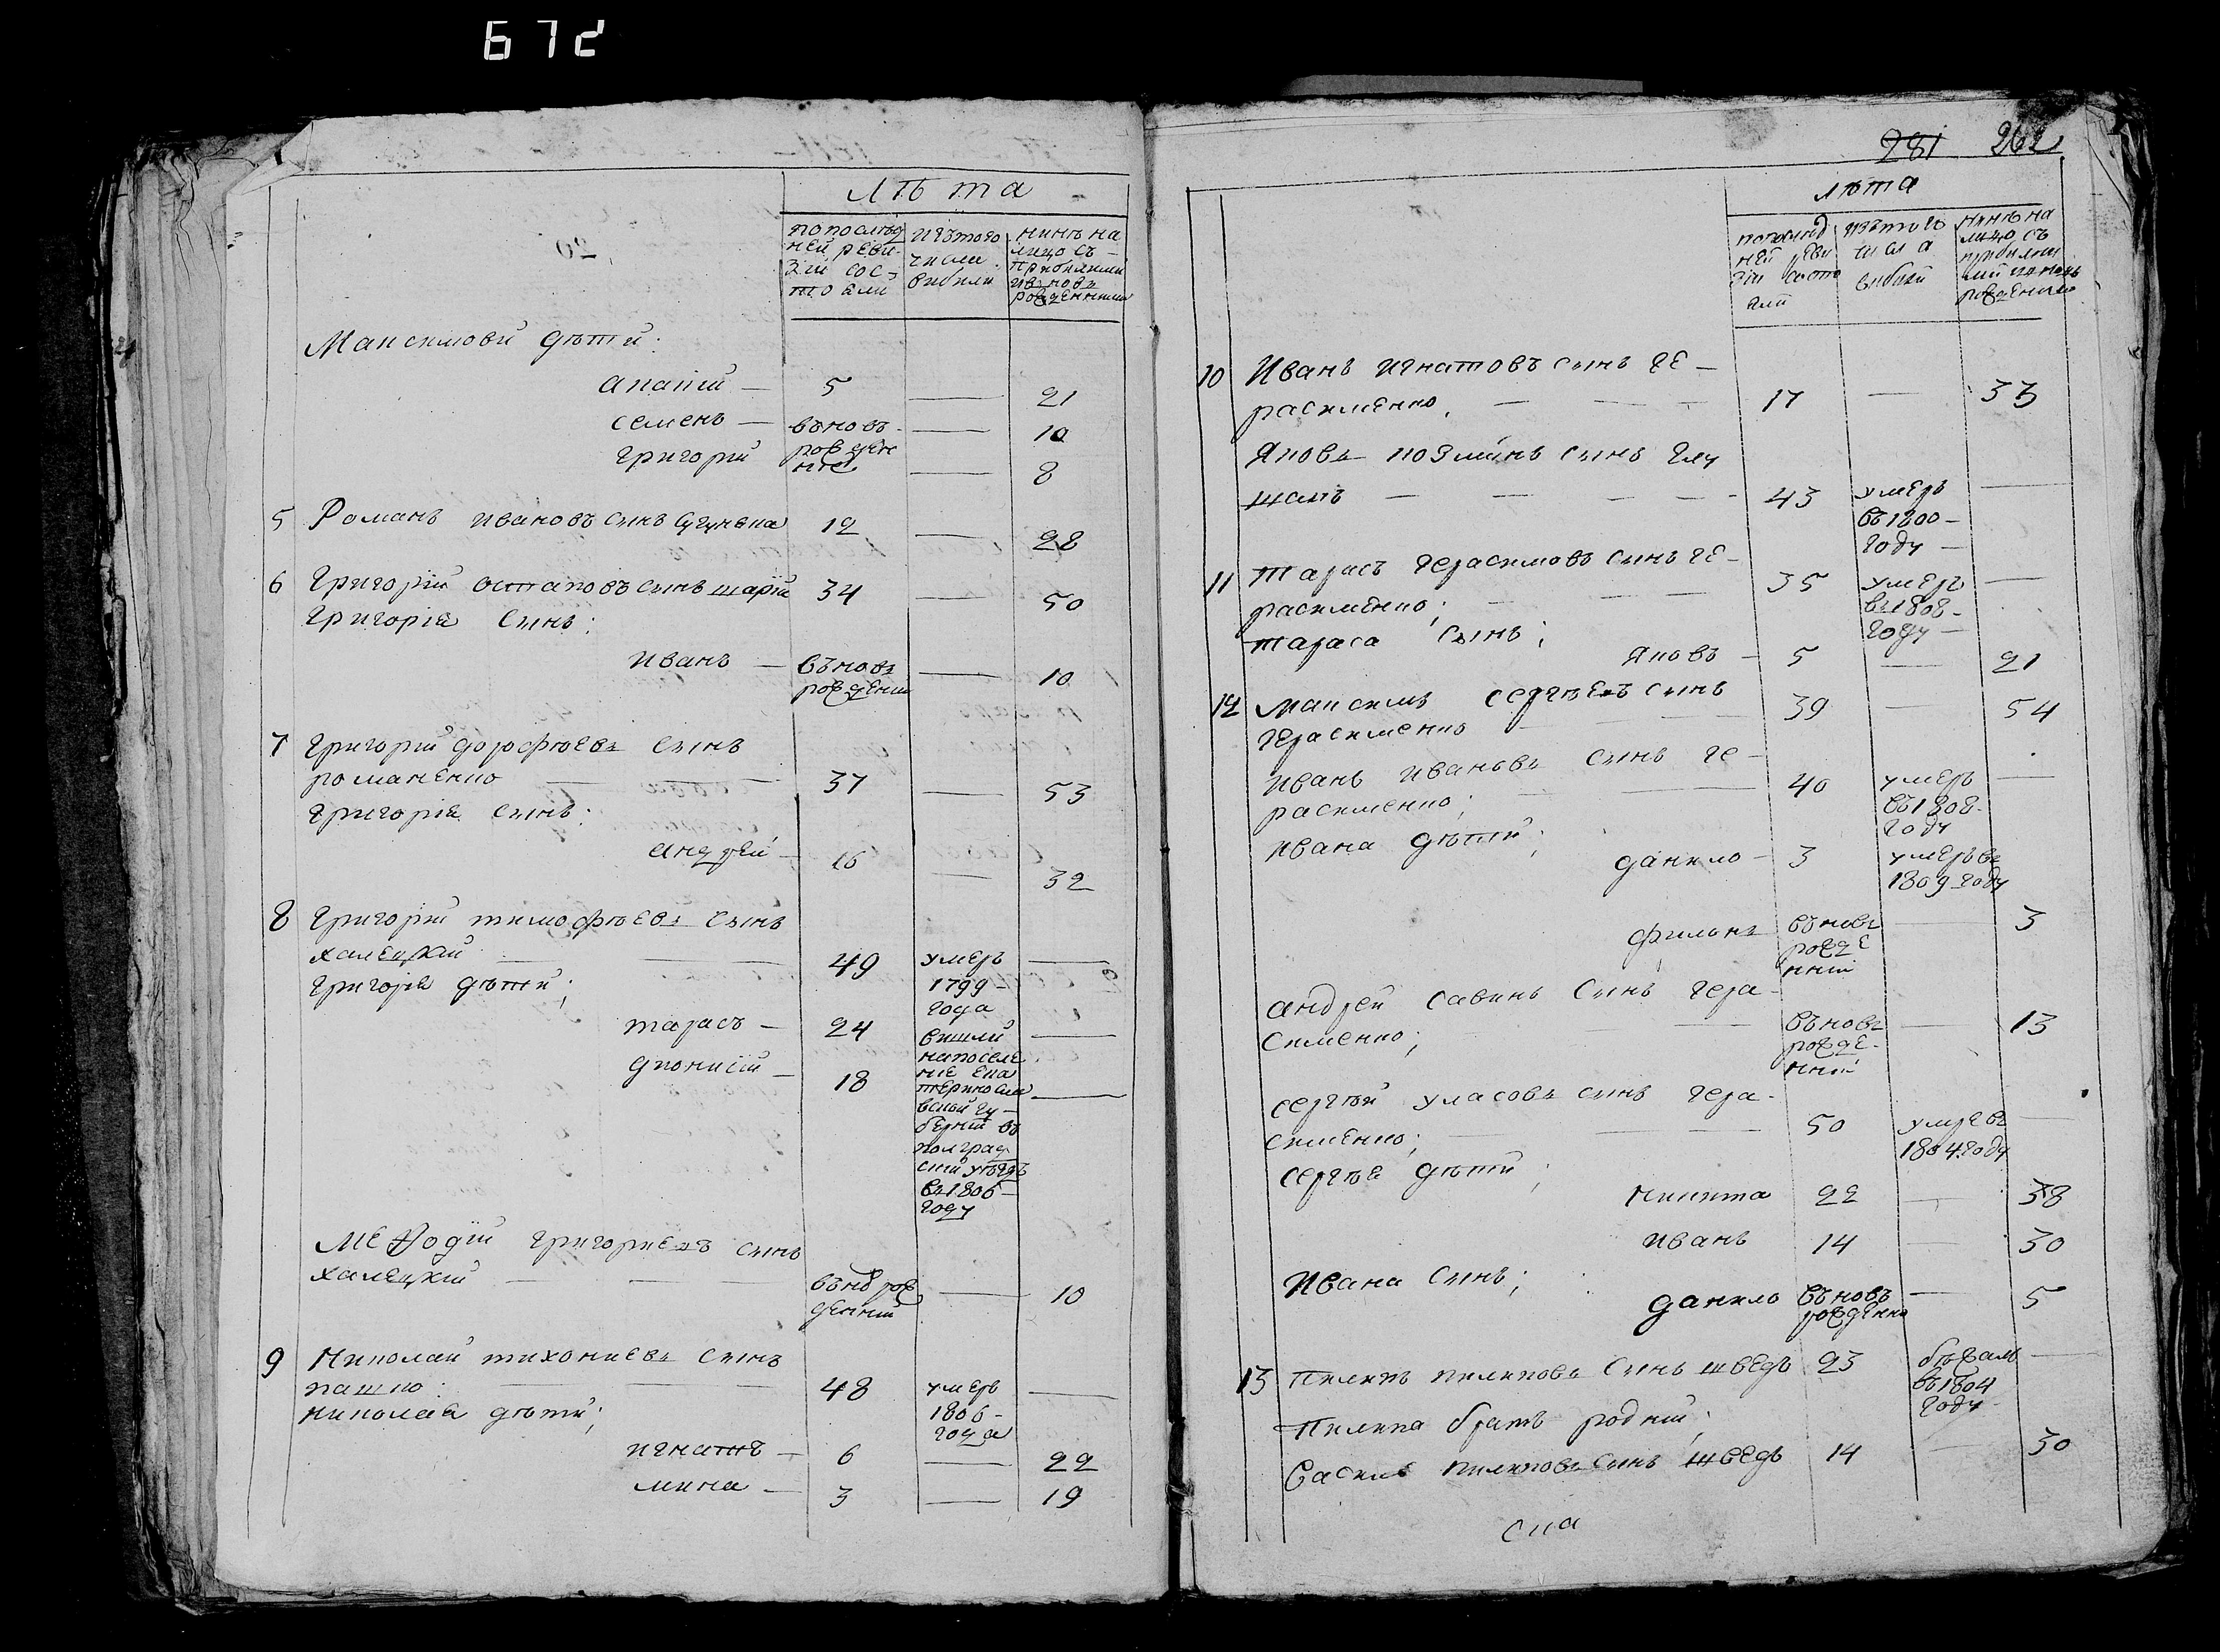 672
лѣта
по послѣд
ней реви
зіи сос-
тояли
изтого
числа
выбыли
нинѣ на
лицо съ
прибилими
ивновь
рожденними
Максимови дѣти:
Агапій — 5 — 21
Семенъ — вьновъ — 10
Григорій рожден
ніе — 8
5 Романъ Ивановъ сынъ 12 — 28
6 Григорій Остаповъ сынъ шарій 34 — 50
Григорія сынъ:
Иванъ — вьновь — 10
рожденни
7 Григорій дорофѣевъ сынъ
романенко — 37 — 53
Григорія сынъ:
андрей — 16 — 32
8 Григорій тимофѣевъ сынъ
халецкій — 49 умеръ —
1799-
года
Григорія дѣти;
тарасъ — 24 вишли —
напоселе
Дионисій — 18 ніе ека
теринос­ла —
вской гу-
берніи въ
полград
скій уѣздъ
въ 1806-
году
Меѳодій григориевъ сынъ
халецкій — вьнов рож — 10
денній
9 Николай тихониевъ сынъ
пашко: — 48 умеръ —
1806-
года
Николая дѣти;
игнатъ — 6 — 22
мина — 3 — 19
281 262
лѣта
по послѣд
ней реви
зіи состо
яли
изътого
числа
выбыли
нинѣ на
лицо съ
прибили
ми ивновь
рожденими
10 Иванъ игнатовъ сынъ ге-
расименко, — 17 — 33
Яковъ козминъ сынъ глу
щакъ — 43 умеръ —
въ 1800-
году —
11 тарасъ герасимовъ сынъ ге- 35 умеръ —
расименко; въ 1808-
году —
тараса сынъ;
яковъ — 5 — 21
12 максимъ сергѣевъ сынъ 39 — 54
герасименко —
иванъ ивановъ сынъ ге-
расименко; — 40 умеръ —
въ 1808-
году
ивана дѣти;
данило — 3 умеръ въ
1809 году
филонъ вьновъ — 3
рожде
нній
андрей савинъ сынъ гера-
сименко; — вьновъ — 13
рожде-
нній
сергѣй уласовъ сынъ гера-
сименко; — 50 умре въ —
1804 году
сергѣя дѣти;
никита 22 — 38
иванъ 14 — 30
Ивана сынъ;
данило вьновъ — 5
рожденно
13 Пилипъ пилиповъ сынъ шведъ 23 бѣжалъ —
въ 1804
году-
Пилипа братъ родній;
Василь пилиповъ сынъ шведъ 14 — 30
сиа